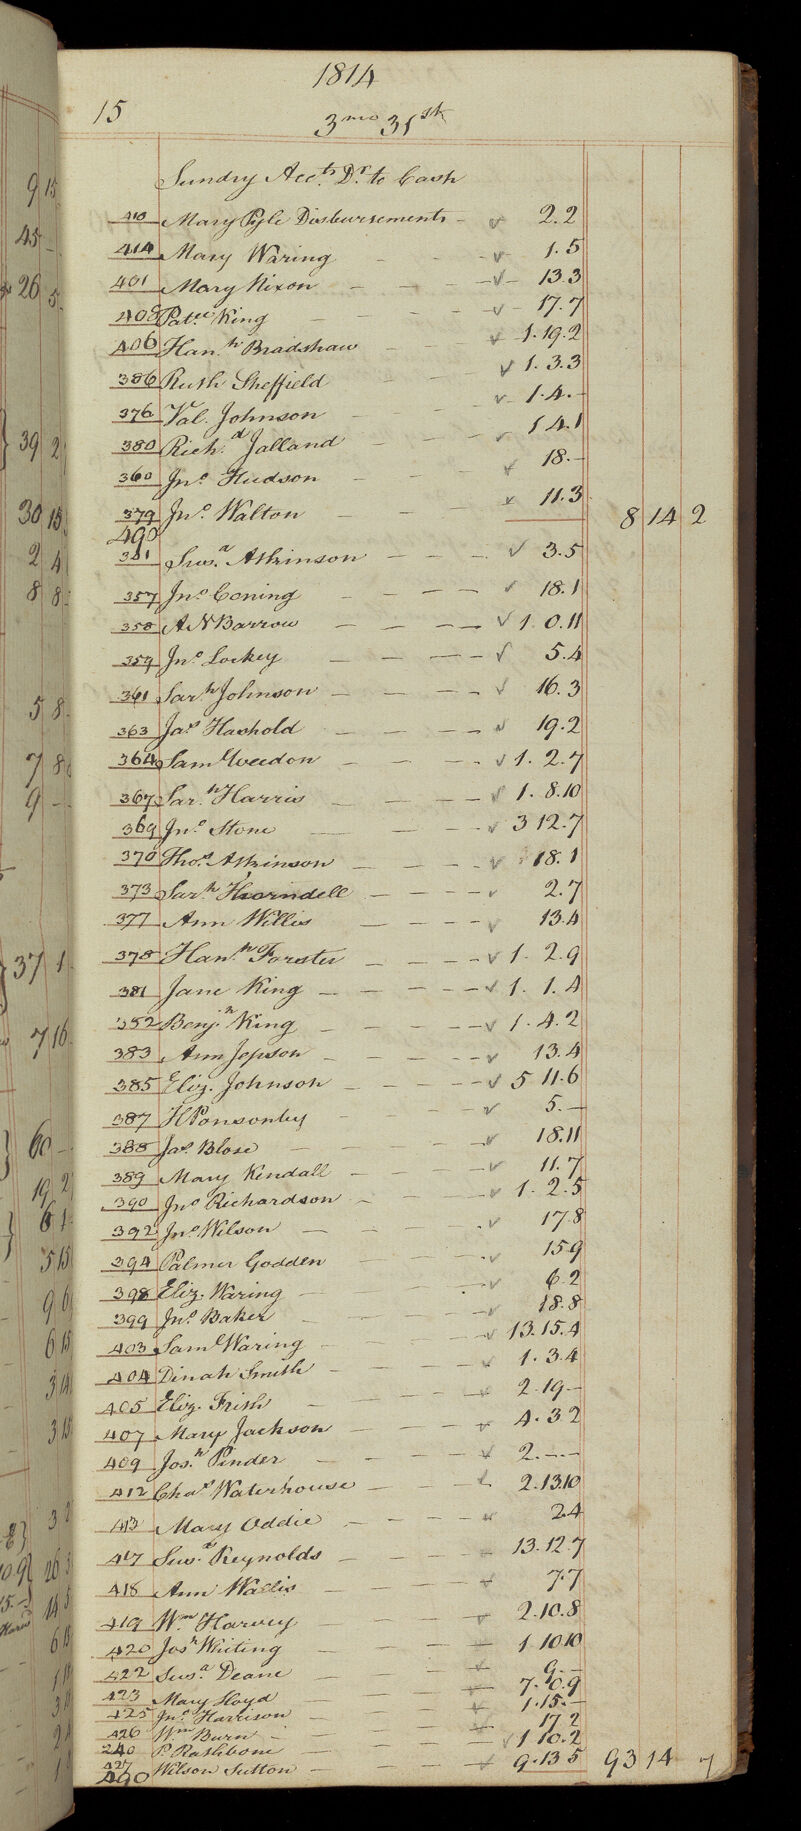 1814
15 3mo 31st
Sundry Accts. Dr. to Cash
410 Mary Pyle Disbursements - ✓ 2.2
414 Mary Waring ✓ 1.5
401 Mary Nixon ✓ 13.3
408 King ✓ 17.7
406 Han.h Bradshaw ✓ 1.19.2
386 Ruth Sheffield ✓ 1.3.3
376 Val. Johnson ✓ 1.4.-
380 Rich.d Jalland ✓ 1 4.1
360 Jno. Hudson ✓ 18.-
379 Jno. Walton ✓ 11.3 8 14 2
490
341 Sus.a Atkinson ✓ 3.5
357 Jno. Coning ✓ 18.1
358 A N Barrow ✓ 1. 0.11
359 Jno. Lockey ✓ 5.4
361 Sarh. Johnson ✓ 16.3
363 Jas. Hashold ✓ 19.2
364 Saml Weedon ✓ 1. 2.7
367 Sar.h Harris ✓ 1. 8.10
369 Jno. Stone ✓ 3 12.7
370 Thos. Atkinson ✓ 18.1
373 Sar.h Thorndell ✓ 2.7
377 Ann Willis ✓ 13.4
378 Han.h Forster ✓ 1. 2.9
381 Jane King ✓ 1. 1.4
382 Benj.n King ✓ 1.4.2
383 Ann Jepson ✓ 13.4
385 Eliz. Johnson ✓ 5 11.6
387 H Ponsonby ✓ 5.-
388 Jas. Blose ✓ 18.11
389 Mary Kendall ✓ 11.7
390 Jno Richardson ✓ 1. 2.5
392 Jno. Wilson ✓ 17.8
394 Palmer Godden ✓ 15.9
398 Eliz. Waring ✓ 6.2
399 Jno. Baker ✓ 18.8
403 Saml Waring ✓ 13.15.4
404 Dinah Smith ✓ 1. 3.4
405 Eliz. Frith ✓ 2.19-
407 Mary Jackson ✓ 4.3.2
409 Jos.h Pinder ✓ 2.-.-
412 Chas. Waterhouse ✓ 2.13.10
413 Mary Oddie ✓ 2.4
417 Sus.a Reynolds ✓ 13.12.7
418 Ann Wallis ✓ 7.7
419 Wm Harvey ✓ 2.10.8
420 Josh Whiting ✓ 1 10.10
422 Sus.a Deane ✓ 9.-
423 Mary Lloyd ✓ 7.0.9
425 Jno. Harrison ✓ 1.15.-
426 Wm Burn ✓ 17.2
240 P. Rathbone ✓ 1 10.2
427 Wilson Sutton ✓ 9.13 5 93 14 7
490